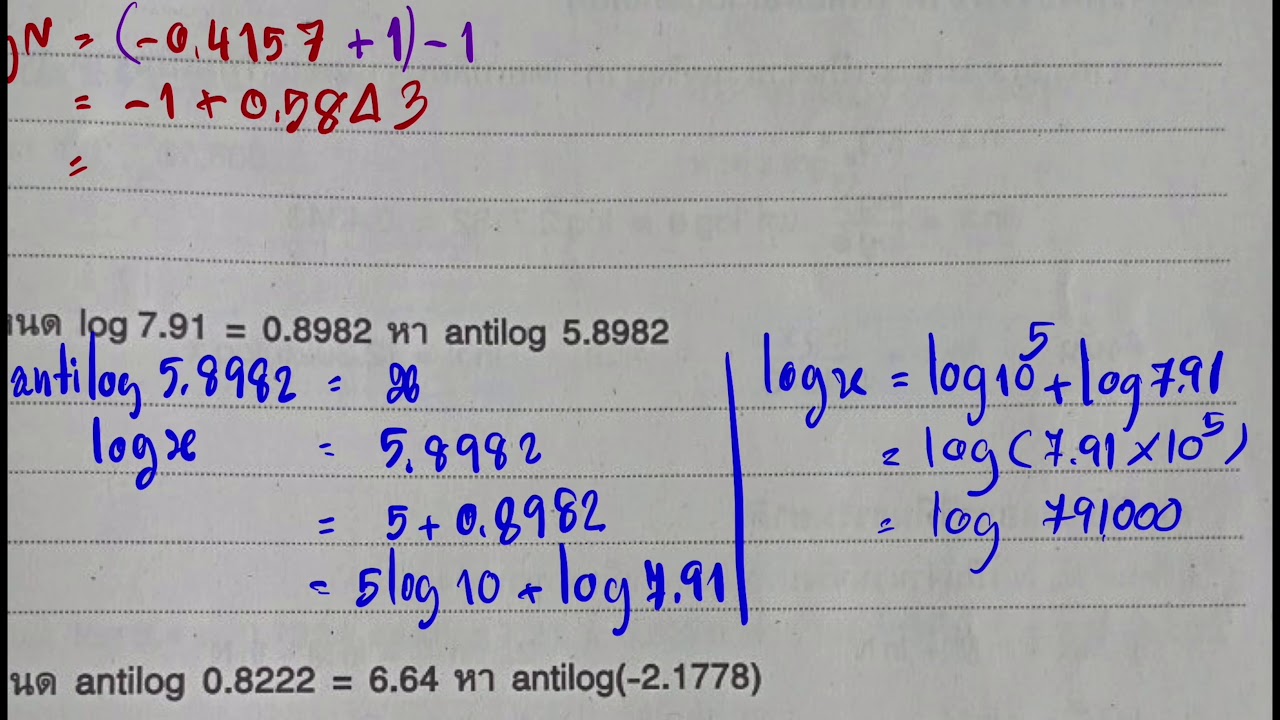 gN = (-0.4157 + 1) - 1
= -1 + 0.5843
=
นด log 7.91 = 0.8982 หา antilog 5.8982
antilog 5.8982 = x
logx = 5.8982
= 5 + 0.8982
= 5log 10 + log 7.91
logx = log10⁵ + log 7.91
= log(7.91 × 10⁵)
= log 791,000
นด antilog 0.8222 = 6.64 หา antilog(-2.1778)